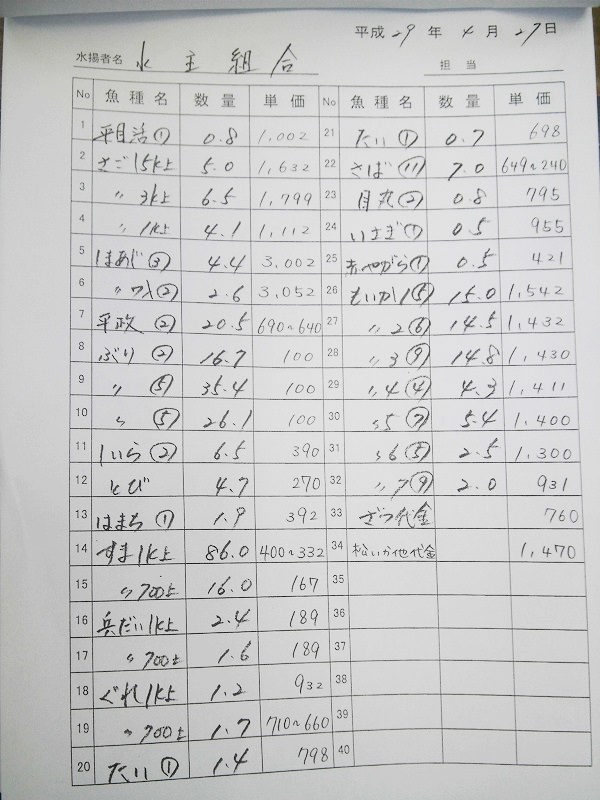 平成 29 年 4 月 27 日
水揚者名 水主組合 担当
No 魚種名 数量 単価 No 魚種名 数量 単価
1 平目活① 0.8 1,002 21 たい① 0.7 698
2 さごし5k上 5.0 1,632 22 さば⑪ 7.0 649~240
3 〃 3k上 6.5 1,799 23 目丸② 0.8 795
4 〃 1k上 4.1 1,112 24 いさぎ① 0.5 955
5 しまあじ③ 4.4 3,002 25 赤やがら① 0.5 421
6 〃 ② 2.6 3,052 26 もいか1⑤ 15.0 1,542
7 平政② 20.5 690~640 27 〃2⑥ 14.5 1,432
8 ぶり② 16.7 100 28 〃3⑨ 14.8 1,430
9 〃⑤ 35.4 100 29 〃4④ 4.3 1,411
10 〃⑤ 26.1 100 30 〃5⑦ 5.4 1,400
11 しいら② 6.5 390 31 〃6⑤ 2.5 1,300
12 とび 4.7 270 32 〃7⑨ 2.0 931
13 はまち① 1.9 392 33 ざつ代金 760
14 すま1k上 86.0 400~332 34 松いか他代金 1,470
15 〃700上 16.0 167 35
16 兵だい1k上 2.4 189 36
17 〃700上 1.6 189 37
18 ぐれ1k上 1.2 932 38
19 〃700上 1.7 710~660 39
20 たい① 1.4 798 40